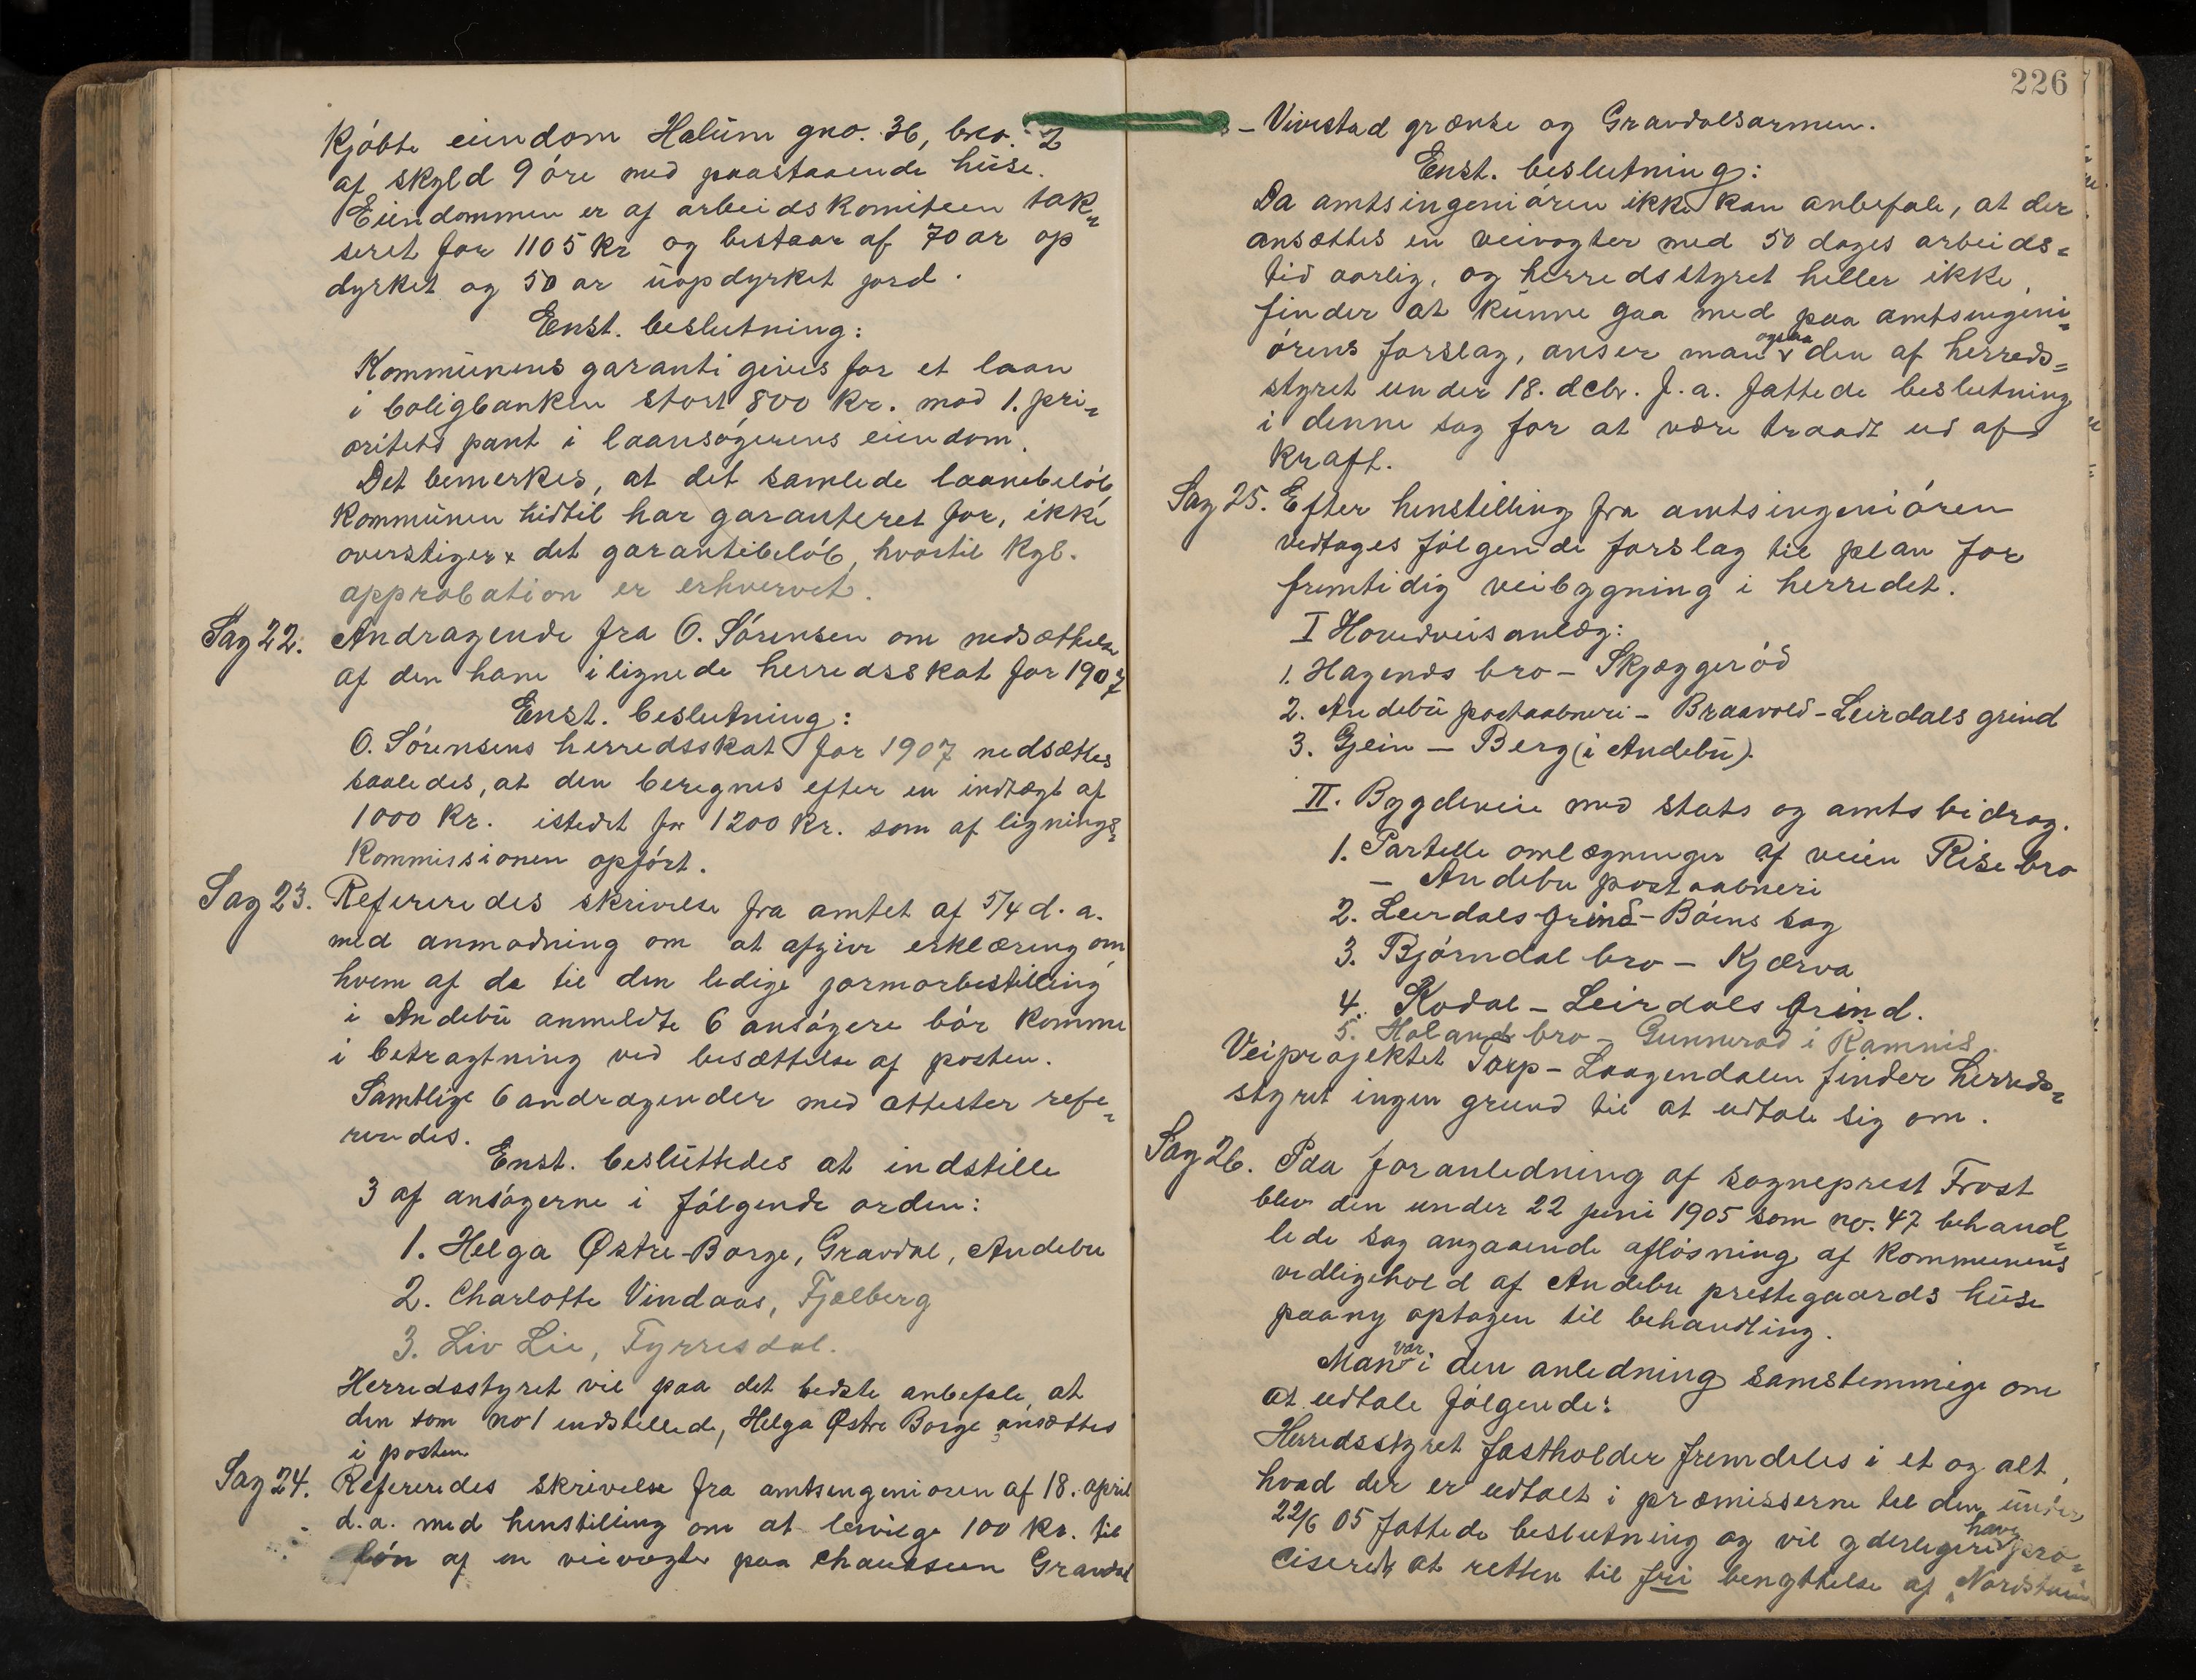 kjøbte eiendom Halum gno. 36, bno. 2
af skyld 9 öre med paastaaende huse.
Eiendommen er af arbeidskomiteen tak=
seret for 1105 kr og bestaar af 70 ar op
dyrket og 50 ar uopdyrket jord.
Enst. beslutning:
Kommunens garanti gives for et laan
i boligbanken stort 800 kr. mod 1. pri=
oritets pant i laansøgerens eiendom.
Det bemerkes, at det samlede laanebeløb
kommunen hidtil har garanteret for, ikke
overstiger det garantibeløb, hvortil kgl.
approbation er erhvervet.
Sag 22. Andragende fra O. Sørensen om nedsættelse
af den ham ilignede herredsskat for 1907
Enst. beslutning:
O. Sørensens herredsskat for 1907 nedsættes
saaledes, at den beregnes efter en indtægt af
1000 kr. istedet for 1200 kr. som af lignings=
kommissionen opført.
Sag 23. Refereredes skrivelse fra amtet af 5/4 d. a.
med anmodning om at afgive erklæring om
hvem af de til den ledige jormorbestilling
i Andebu anmeldte 6 ansøgere bør komme
i betragtning ved besættelse af posten.
Samtlige 6 andragender med attester refe=
reredes.
Enst. besluttedes at indstille
3 af ansøgerne i følgende orden:
1. Helga Østre-Borge, Gravdal, Andebu
2. Charlotte Vindaas, Fjelberg
3. Liv Lie, Tyrresdal.
Herredsstyret vil paa det bedste anbefale, at
den som no 1 indstillede, Helga Østre Borge ansættes
i posten
Sag 24. Refereredes skrivelse fra amtsingeniøren af 18. april
d. a. med henstilling om at bevilge 100 kr. til
løn af en veivogter paa chausseen Gravdal
226
- Vivestad grænse og Gravdalsarmen.
Enst. beslutning:
Da amtsingeniøren ikke kan anbefale, at der
ansættes en veivogter med 50 dages arbeids=
tid aarlig, og herredsstyret heller ikke
finder at kunne gaa med paa amtsingeni=
ørens forslag, anser man ogsaa den af herreds=
styret under 18. dcbr. f. a. fattede beslutning
i denne sag for at være traadt ud af
kraft.
Sag 25. Efter henstilling fra amtsingeniøren
vedtages følgende forslag til plan for
fremtidig veibygning i herredet.
I Hovedveisanlæg:
1. Hagenes bro - Skjæggerød
2. Andebu postaabneri - Braavold - Leirdals grind
3. Gjein - Berg (i Andebu).
II. Bygdeveie med stats og amtsbidrag.
1. Partelle omlægninger af veien Rise bro
- Andebu postaabneri
2. Leirdals Grind - Bøens sag
3. Bjørndal bro - Kjærva
4. Kodal - Leirdals Grind.
5. Holand bro - Gunnerød i Ramnes.
Veiprojektet Torp - Laagendalen finder herreds=
styret ingen grund til at udtale sig om.
Sag 26. Paa foranledning af sogneprest Frost
blev den under 22 juni 1905 som no. 47 behand=
lede sag angaaende afløsning af kommunens
vedligehold af Andebu prestegaards huse
paany optagen til behandling.
Man var i den anledning samstemmige om
at udtale følgende:
Herredsstyret fastholder fremdeles i et og alt,
hvad der er udtalt i præmisserne til den under
22/6 05 fattede beslutning og vil yderligere have præ=
ciseret, at retten til fri benyttelse af "Nordstuen